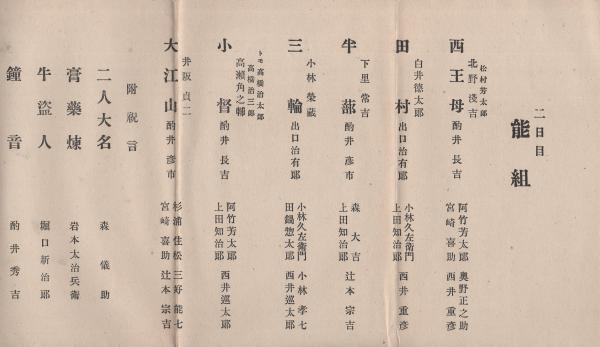 二日目
能組
松村芳太郎
北野淺吉
西王母 酌井長吉 阿竹芳太郎 奥野正之助
宮崎喜助 西井重彦
白井德太郎
田村 出口治有郎 小林久左衛門
上田知治郎 西井重彦
下里常吉
半蔀 酌井彦市 森大吉
上田知治郎 辻本宗吉
小林榮蔵
三輪 出口治有郎 小林久左衛門 小林孝七
田鍋惣太郎 西井巡太郎
トモ高橋治太郎
高橋治三郎
高瀬角之輔
小督 酌井長吉 阿竹芳太郎
上田知治郎 西井巡太郎
井阪貞二
大江山 酌井彦市 杉浦佳松 三好能七
宮崎喜助 辻本宗吉
附祝言
二人大名 森儀助
膏藥煉 岩本太治兵衛
牛盗人 堀口新治郎
鐘音 酌井秀吉